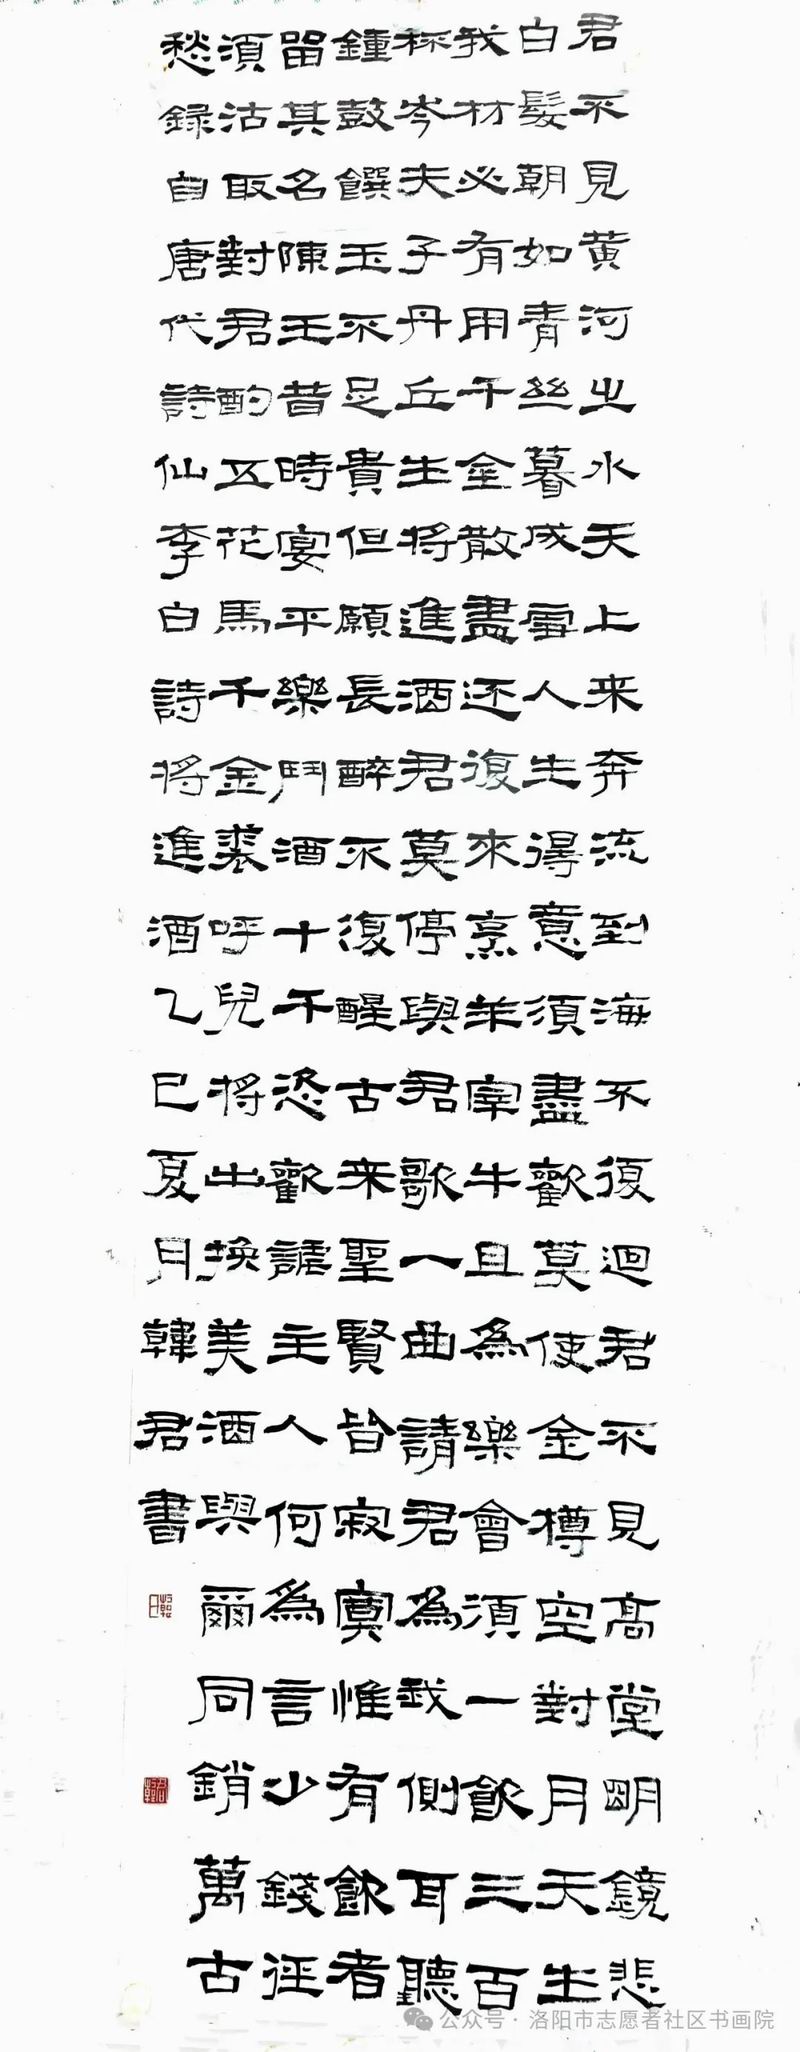 君不見黄河之水天上来奔流到海不復迴君不見高堂明鏡悲
白髮朝如青絲暮成雪人生得意須盡歡莫使金樽空對月天生
我材必有用千金散盡还復來烹羊宰牛且為樂會須一飲三百
杯岑夫子丹丘生将進酒君莫停與君歌一曲請君為我側耳聽
鍾鼓饌玉不足貴但願長醉不復醒古来聖賢皆寂寞惟有飲者
留其名陳王昔時宴平樂鬥酒十千恣歡謔主人何為言少錢径
須沽取對君酌五花馬千金裘呼兒将出换美酒與爾同銷萬古
愁錄自唐代詩仙李白詩将進酒乙巳夏月韓君書
公众号 · 洛阳市志愿者社区书画院